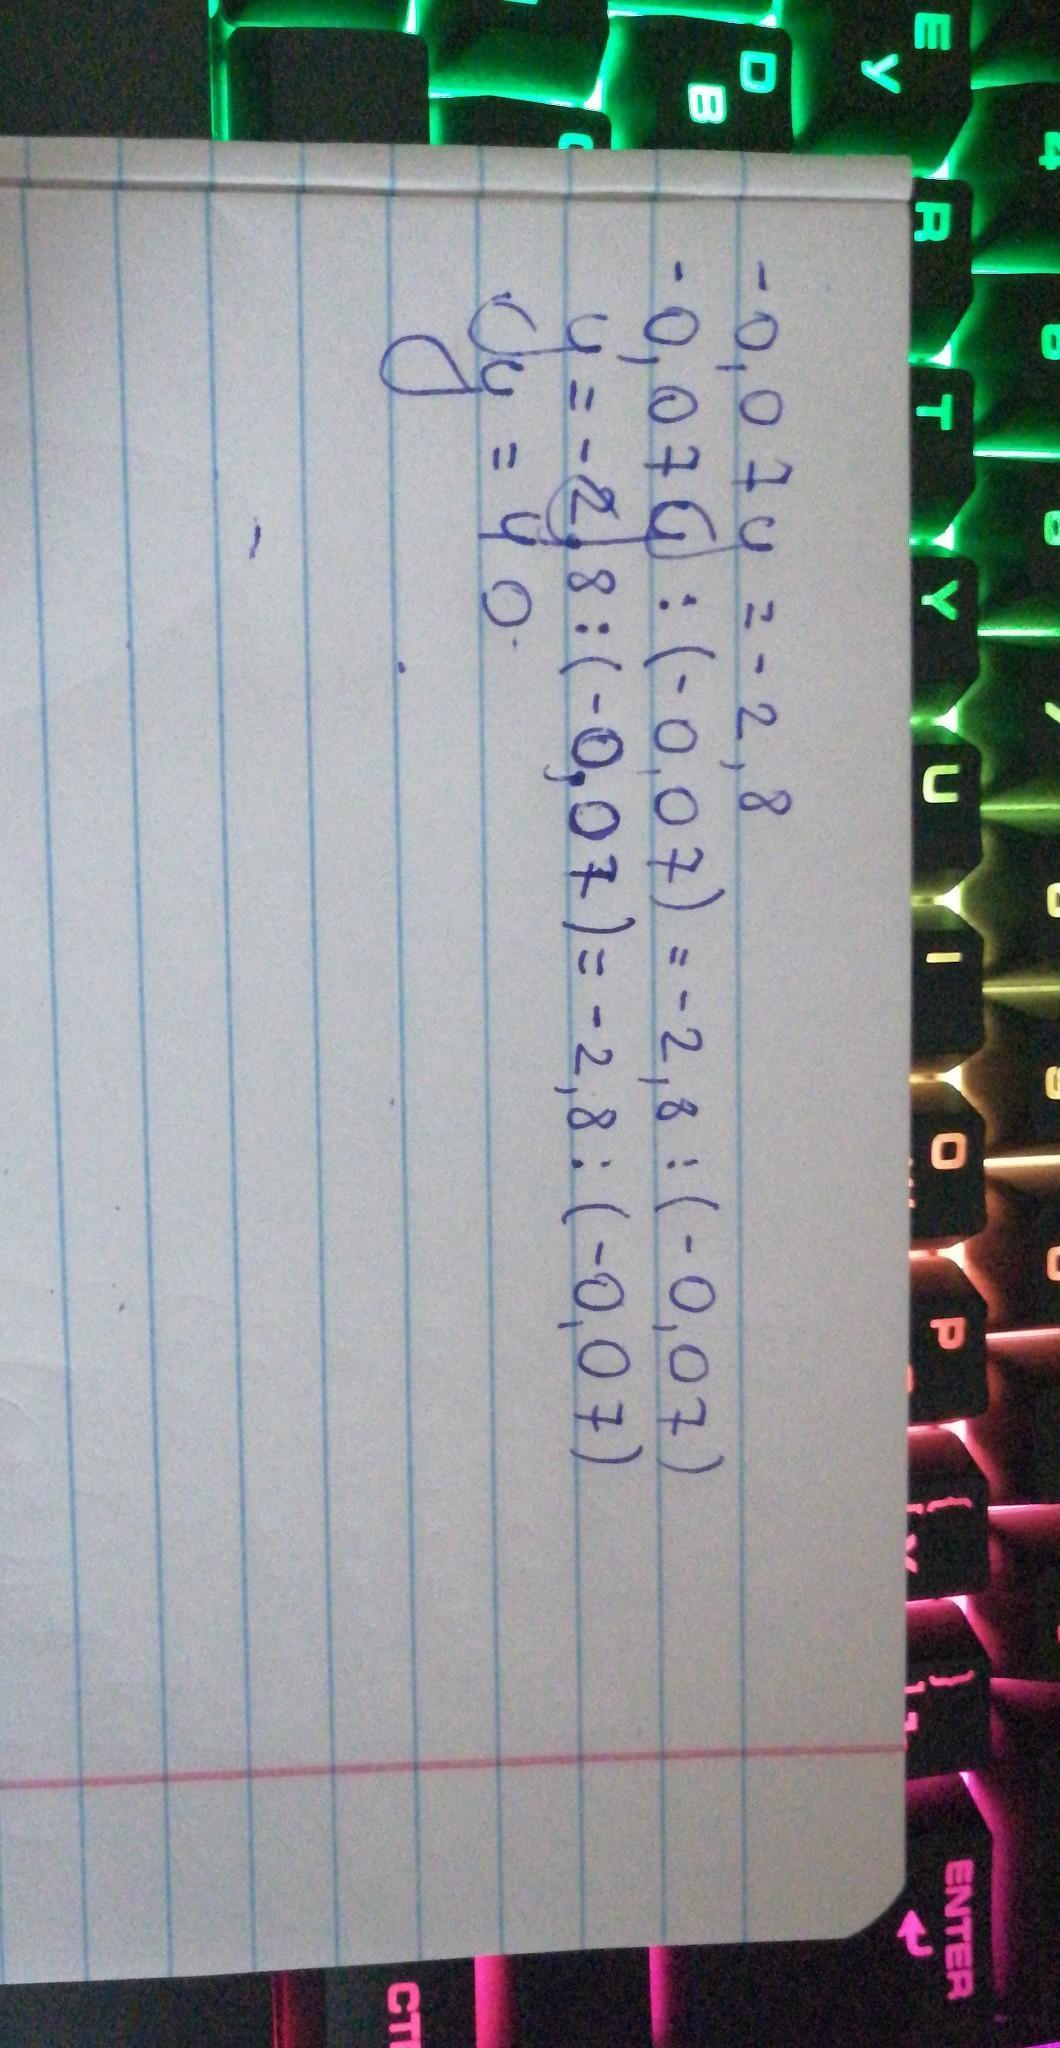 -0,07y = -2,8
-0,07y : (-0,07) = -2,8 : (-0,07)
y = -2,8 : (-0,07) = -2,8 : (-0,07)
y = 40
E
Y
D
B
4
R
T
Y
U
I
O
P
{
}
ENTER